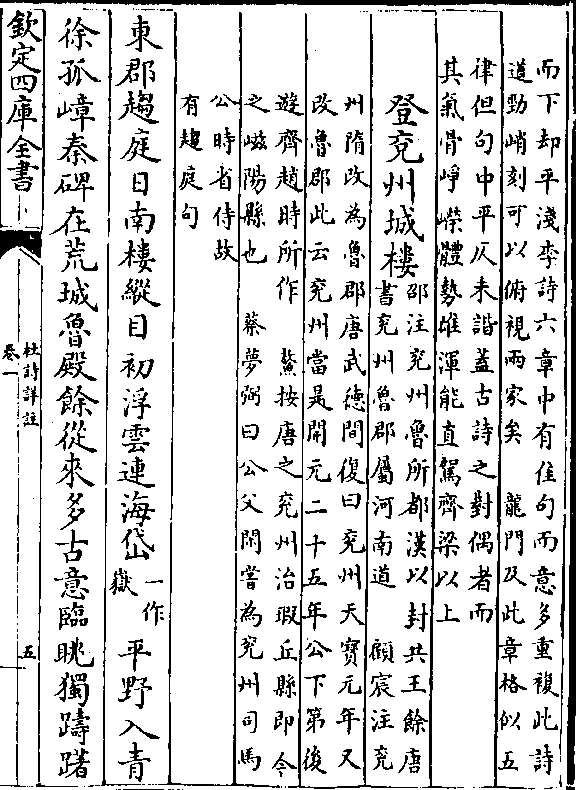 而下却平淺李詩六章中有佳句而意多重複此詩
道勁峭刻可以俯視兩家矣　龍門及此章格似五
律但句中平仄未諧蓋古詩之對偶者而
其氣骨崢嶸體勢雄渾能直駕齊梁以上
登兖州城樓
邵注兖州魯所都漢以封共王餘唐
書兖州魯郡屬河南道　顧宸注兖
州隋改為魯郡唐武德間復曰兖州天寶元年又
改魯郡此云兖州當是開元二十五年公下第後
遊齊趙時所作　鰲按唐之兖州治瑕丘縣即今
之嵫陽縣也　蔡夢弼曰公父閑嘗為兖州司馬
公時省侍故
有趨庭句
東郡趨庭日南樓縱目初浮雲連海岱一作嶽平野入青
徐孤嶂秦碑在荒城魯殿餘從來多古意臨眺獨躊躇
欽定四庫全書
杜詩詳註
卷一
五